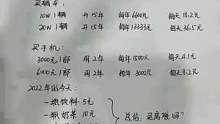 买辆车:
10W 1辆 开15年 每年6600元 每天18.2元
20W 1辆 开15年 每年13333元 每天36.5元
买手机:
3000元 1部 用2年 每年1500元 每天4.1元
6000元 1部 用2年 每年3000元 每天8.2元
2022年的今天
一瓶饮料 5元
一瓶奶茶 10元